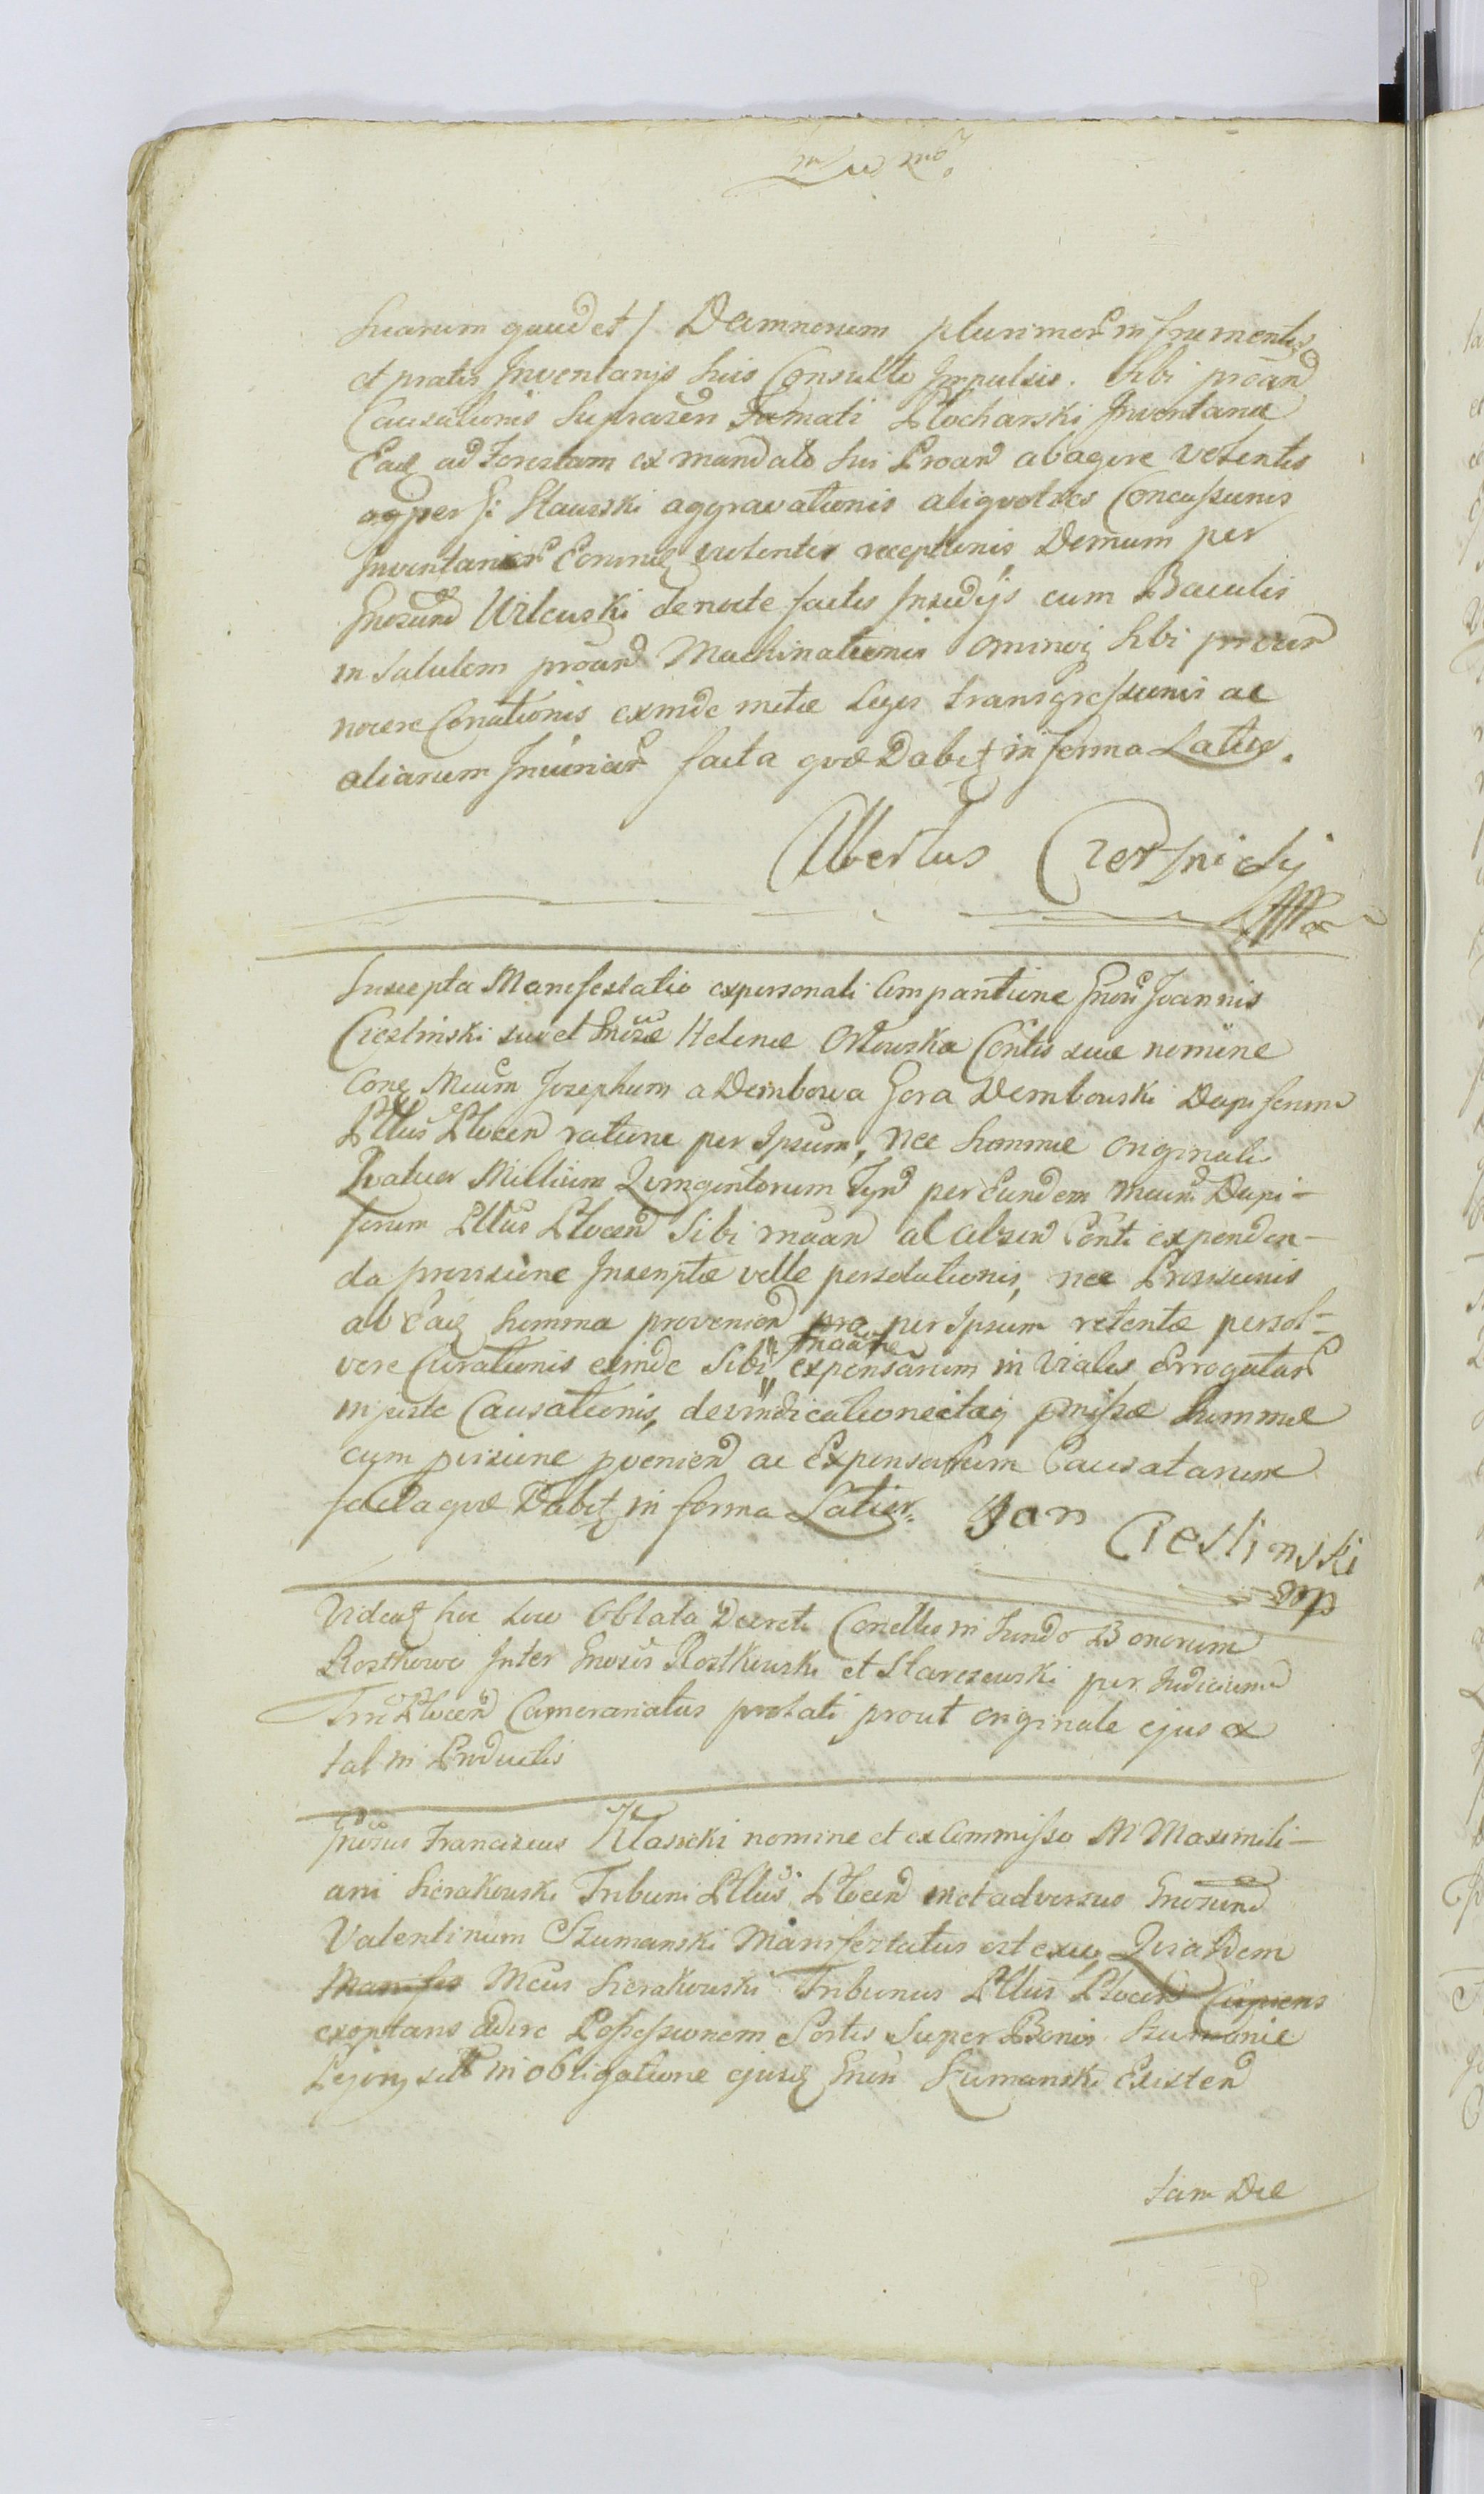 suarum gaudet / Damnorum plurimor in frumentis
et pratis Inventarijs suis Consulto Impulsis. Sibi proand
Causationis supraren Famati Plocharski Inventaria
Eaq ad Forestam ex mandato sui Proand abagere volentis
per G: Slaurski aggravationis aliquoties Concussionis
Inventarior Eorumq violenter receptionis, Demum per
Gnosum Wilcuski de nocte factis Insidijs cum Baculis
in salutem proand Machinationis omninoq sibi proand
nocere Conationis exinde metæ Legis transgressionis ac
aliarum Iniuriar facta quæ Dabit in forma Latius.
Albertus
Suscepta Manifestatio ex personali Comparitione Gnosi Joannis
Ciesliński suo et Gnosæ Helenæ Orłowska Contis suæ nomine
Cone Mcum Josephum a Dembowa Gora Dembowski Dapiferum
Pllus Plocen ratione per Ipsum, nec summæ originalis
Quatuor Millium Quingentorum Tynd per Eundem Mcum Dapi-
ferum Pllus Plocen Sibi maan ac absen Conti expenden-
da provisione Inscriptæ velle persolutionis, nec Provisionis
ab Eaq summa provenien pro per Ipsum retentæ persol-
vere Curationis exinde Sibi maan expensarum in Vialis Errogatar
injuste Causationis, de vindicationeitaq pmissæ summæ
cum pvisione pvenien ac Expensarum Causatarum
facta quæ Dabit in forma Latior. Jan Cieslinski
mp
Videat hic loco Oblata Decreti Conellis in Fundo Bonorum
Rostkowo Inter Gnosos Rostkowski et Starczewski per Judicium
Trre Plocen Camerariatus prolati prout originale ejus ex
tat in Productis
Gnosus Franciscus Klasicki nomine et ex Commisso M Maximili-
ani Sierakowski Tribuni Pllus Plocen in et adversus Gnosum
Valentinum Szumanski Manifestatus est exeo, Quia Idem
Manifes Mcus Sierakowski Tribunus Pllus Plocen Cupiens
exoptans adire Possessionem Sortis Super Bonis Szumanie
Pejory sitt in obligatione ejusq Gnosi Szumanski Existen
tam Die